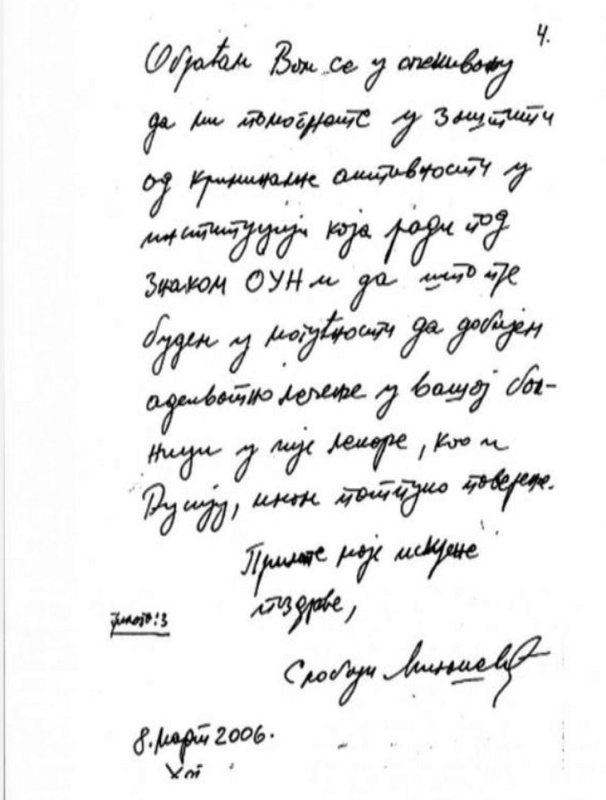 4.
Обраћам Вам се у очекивању
да ми помогнете у заштити
од криминалне активности у
институцији која ради под
знаком ОУН и да што пре
будем у могућности да добијем
адекватно лечење у вашој бол-
ници у чије лекаре, као и
Русију, имам потпуно поверење.
Примите моје искрене
поздраве,
Слободан Милошевић
8. март 2006.